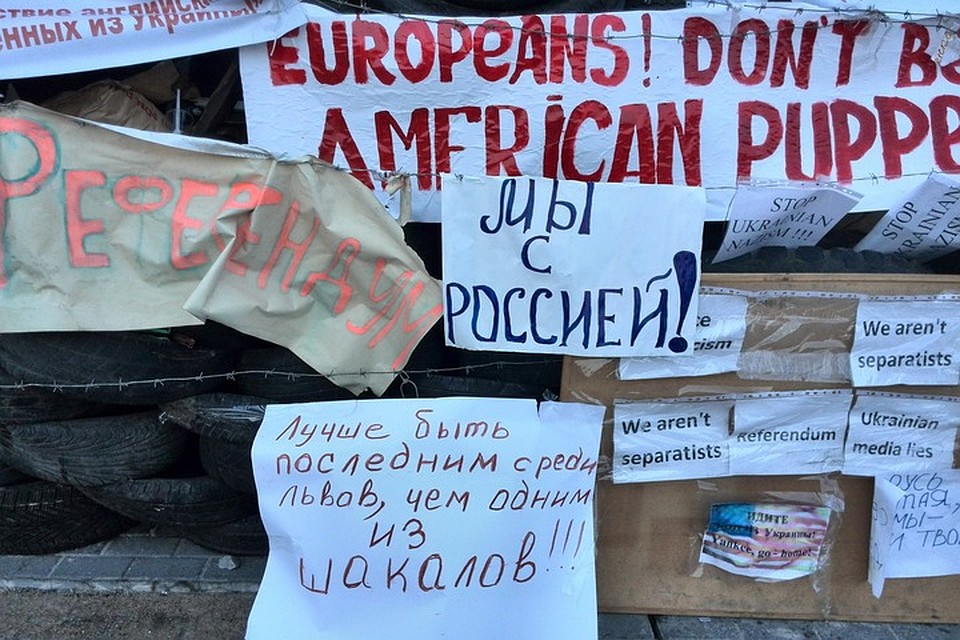 ствие английск
енных из Украины
EUROPEANS! DON'T BE
AMERICAN PUPPE
РЕФЕРЕНДУМ
МЫ
С
РОССИЕЙ!
STOP
UKRAINIAN
NAZISM!!!
STOP
UKRAINIAN
NAZISM
We aren't
separatists
We aren't
separatists
Referendum
Ukrainian
media lies
Лучше быть
последним среди
львов, чем одним
из
шакалов!!!
ИДИТЕ
из Украины!
Yankee, go - home!
РУСЬ
ТАЯ,
МЫ-
И ТВО